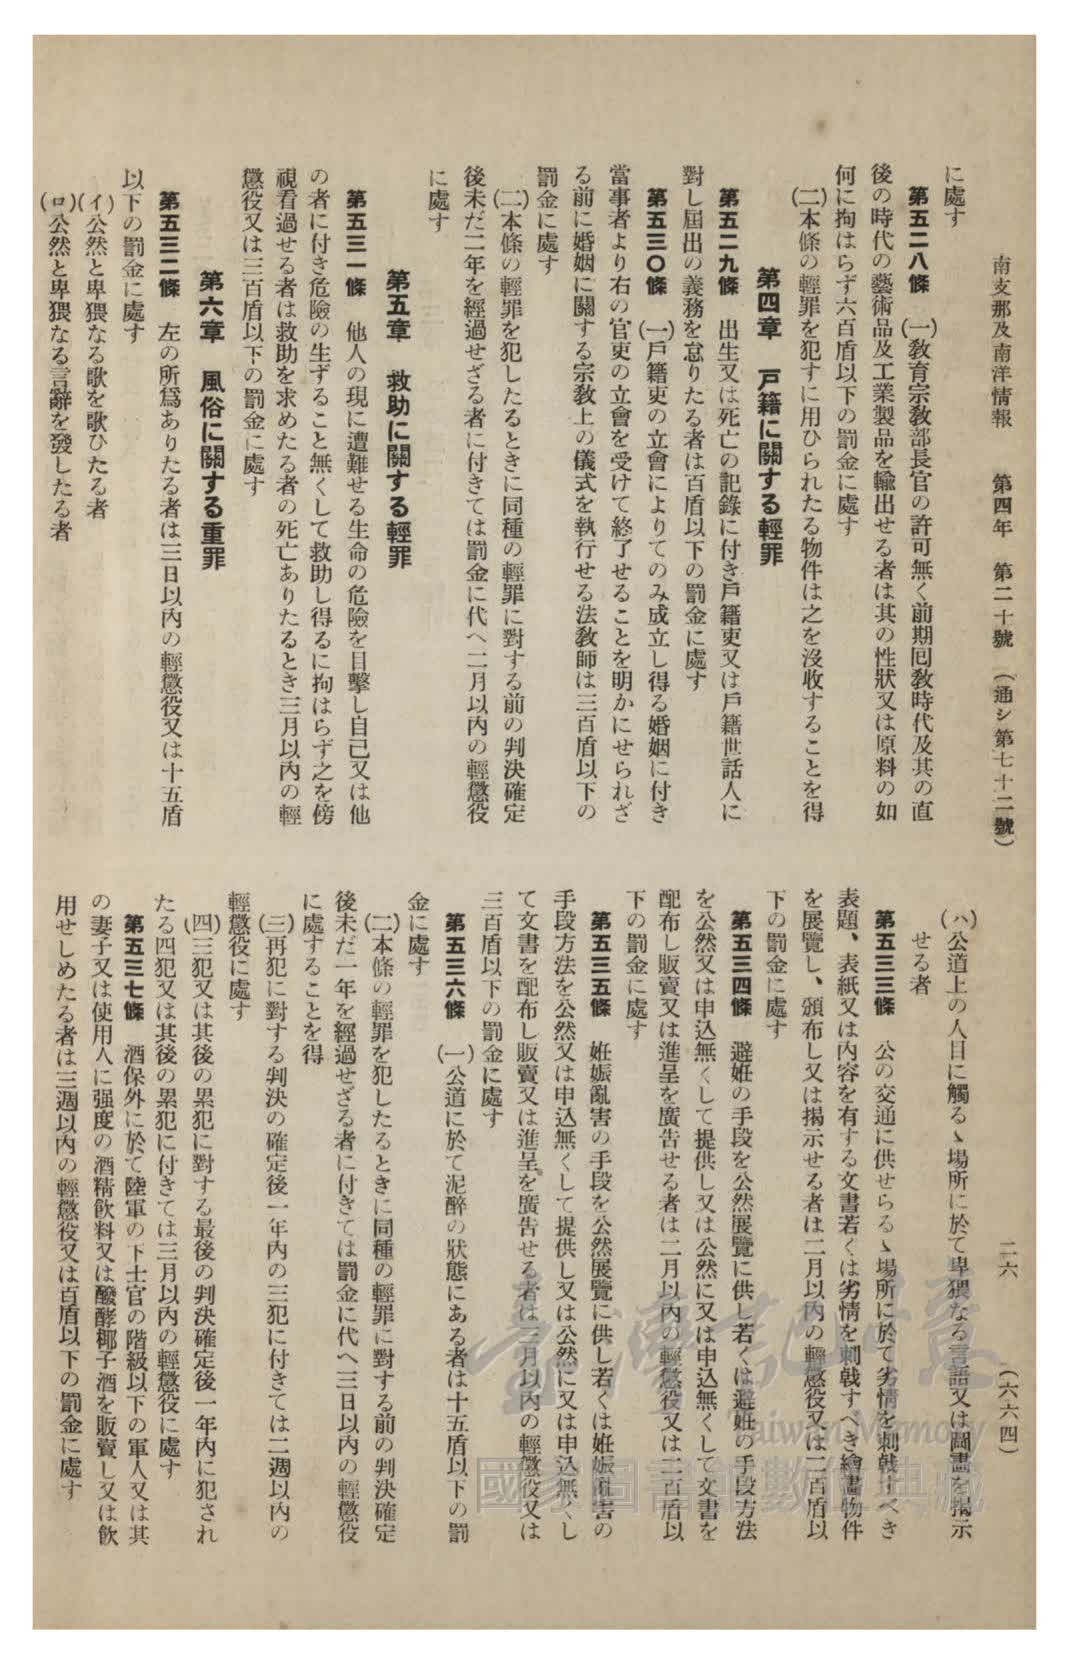 南支那及南洋情報　第四年　第二十號　（通シ第七十二號）
二六
（六六四）
に處す
第五二八條　㈠教育宗教部長官の許可無く前期囘教時代及其の直
後の時代の藝術品及工業製品を輸出せる者は其の性狀又は原料の如
何に拘はらず六百盾以下の罰金に處す
㈡本條の輕罪を犯すに用ひられたる物件は之を沒收することを得
第四章　戸籍に關する輕罪
第五二九條　出生又は死亡の記錄に付き戸籍吏又は戸籍世話人に
對し屆出の義務を怠りたる者は百盾以下の罰金に處す
第五三〇條　㈠戸籍吏の立會によりてのみ成立し得る婚姻に付き
當事者より右の官吏の立會を受けて終了せることを明かにせられざ
る前に婚姻に關する宗教上の儀式を執行せる法教師は三百盾以下の
罰金に處す
㈡本條の輕罪を犯したるときに同種の輕罪に對する前の判決確定
後未だ二年を經過せざる者に付きては罰金に代へ二月以內の輕懲役
に處す
第五章　救助に關する輕罪
第五三一條　他人の現に遭難せる生命の危險を目擊し自己又は他
の者に付き危險の生ずること無くして救助し得るに拘はらず之を傍
視看過せる者は救助を求めたる者の死亡ありたるとき三月以內の輕
懲役又は三百盾以下の罰金に處す
第六章　風俗に關する重罪
第五三二條　左の所爲ありたる者は三日以內の輕懲役又は十五盾
以下の罰金に處す
(イ)公然と卑猥なる歌を歌ひたる者
(ロ)公然と卑猥なる言辭を發したる者
(ハ)公道上の人目に觸るゝ場所に於て卑猥なる言語又は圖畫を揭示
せる者
第五三三條　公の交通に供せらるゝ場所に於て劣情を刺戟すべき
表題、表紙又は內容を有する文書若くは劣情を刺戟すべき繪畫物件
を展覽し、頒布し又は揭示せる者は二月以內の輕懲役又は二百盾以
下の罰金に處す
第五三四條　避姙の手段を公然展覽に供し若くは避姙の手段方法
を公然又は申込無くして提供し又は公然に又は申込無くして文書を
配布し販賣又は進呈を廣告せる者は二月以內の輕懲役又は二百盾以
下の罰金に處す
第五三五條　姙娠亂害の手段を公然展覽に供し若くは姙娠亂害の
手段方法を公然又は申込無くして提供し又は公然に又は申込無くし
て文書を配布し販賣又は進呈を廣告せる者は三月以內の輕懲役又は
三百盾以下の罰金に處す
第五三六條　㈠公道に於て泥醉の狀態にある者は十五盾以下の罰
金に處す
㈡本條の輕罪を犯したるときに同種の輕罪に對する前の判決確定
後未だ一年を經過せざる者に付きては罰金に代へ三日以內の輕懲役
に處することを得
㈢再犯に對する判決の確定後一年內の三犯に付きては二週以內の
輕懲役に處す
㈣三犯又は其後の累犯に對する最後の判決確定後一年內に犯され
たる四犯又は其後の累犯に付きては三月以內の輕懲役に處す
第五三七條　酒保外に於て陸軍の下士官の階級以下の軍人又は其
の妻子又は使用人に强度の酒精飮料又は醱酵椰子酒を販賣し又は飮
用せしめたる者は三週以內の輕懲役又は百盾以下の罰金に處す
臺灣記憶
Taiwan Memory
國家圖書館數位典藏